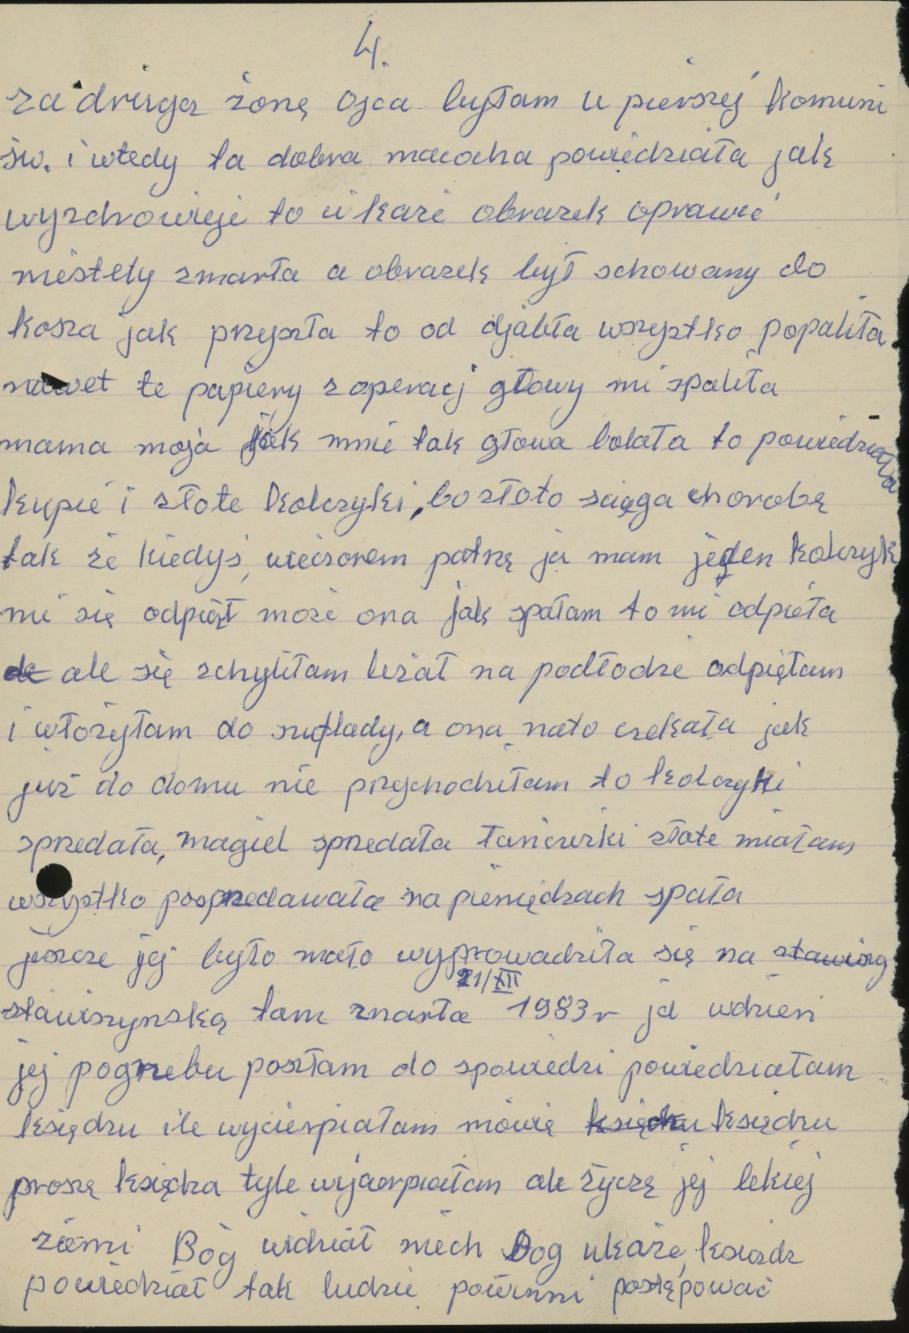 4.
za drugą żonę ojca byłam u pierszej komuni
św. i wtedy ta dobra macocha powiedziała jak
wyzdrowieje to i każe obrazek oprawić
niestety zmarła a obrazek był schowany do
kosza jak przyszła to od djabła wszystko popaliła
nawet te papiery z operacj głowy mi spaliła
mama moja jak mnie tak głowa bolała to powiedziała
kupić i złote kolczyki, bo złoto sciąga chorobę
tak że kiedyś wieczorem patrzę ja mam jeden kolczyk
mi się odpiął może ona jak spałam to mi odpieła
ale się schyliłam leżał na podłodze odpięłam
i włożyłam do szuflady, a ona nato czekała jak
już do domu nie przychodziłam to kolczyki
sprzedała, magiel sprzedała łańcuszki złote miałam
wszystko posprzedawała na pieniędzach spała
jeszcze jej było mało wyprowadziła się na stawisz
21/XII
stawiszyńską tam zmarła 1983r ja wdzień
jej pogrzebu poszłam do spowiedzi powiedziałam
księdzu ile wycierpiałam mówię księdzu księdzu
proszę księdza tyle wycierpiałam ale życzę jej lekiej
ziemi Bóg widział niech Bog ukaże, ksiądz
powiedział tak ludzie powinni postępować